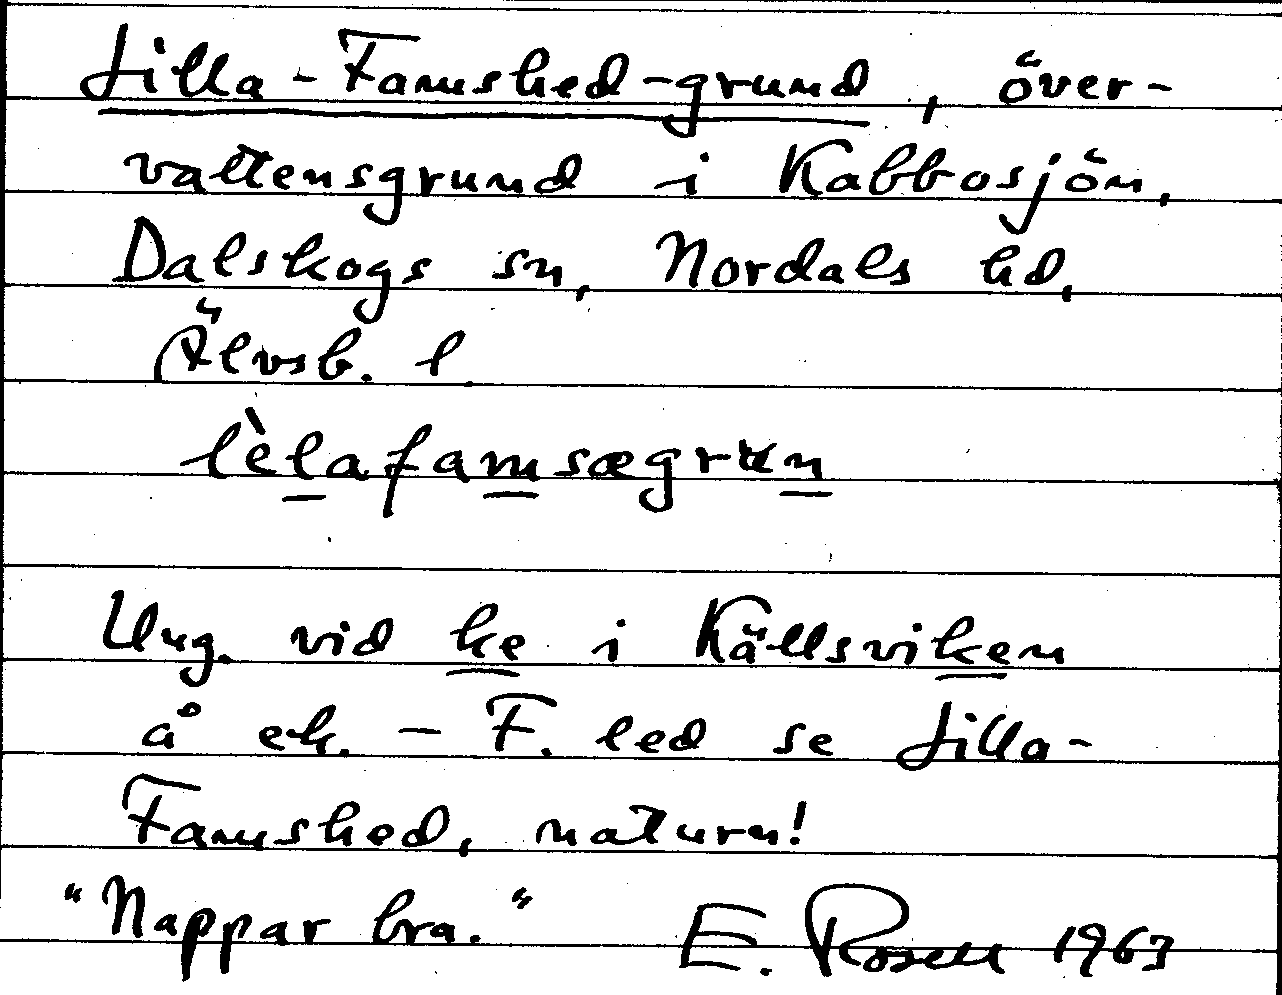 Lilla-Famshed-grund, över-
vattensgrund i Kabbosjön,
Dalskogs sn, Nordals hd,
Älvsb. l.
lèlafamsægrun
Ung. vid ke i Källsviken
å ek. - F. led se Lilla-
Famshed, naturn!
"Nappar bra." E. Rosell 1963